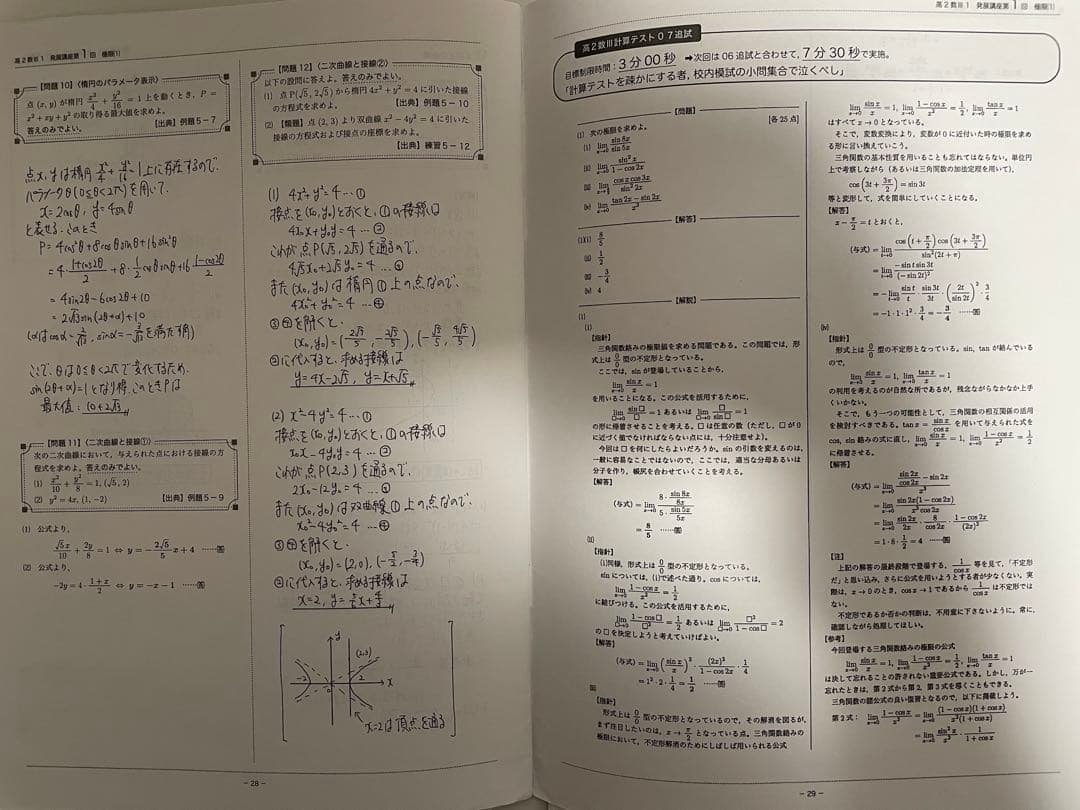 高2数Ⅲ1 発展講座第1回 極限(1)
【問題10】〈楕円のパラメータ表示〉
点(x, y)が楕円 x²/4 + y²/16 = 1上を動くとき、P =
x² + xy + y²の取り得る最大値を求めよ。
答えのみでよい。 【出典】例題5－7
点x, yは楕円 x²/4 + y²/16 = 1上に存在するので、
パラメータθ(0≤θ<2π)を用いて、
x=2cosθ, y=4sinθ
と表せる。このとき
P=4cos²θ+8cosθsinθ+16sin²θ
=4・(1+cos2θ)/2+8・1/2cosθsinθ+16・(1-cos2θ)/2
=4sin2θ-6cos2θ+10
=2√13sin(2θ+α)+10
ここで、θは0≤θ<2πで変化するため、
sin(2θ+α)=1となり得、このときPは
最大値: 10+2√13
【問題11】〈二次曲線と接線①〉
次の二次曲線において、与えられた点における接線の方
程式を求めよ。答えのみでよい。
(1) x²/10 + y²/8 = 1, (√5, 2)
(2) y² = 4x, (1, -2) 【出典】例題5－9
(1) 公式より、
√5x/10 + 2y/8 = 1 ⇔ y = -2√5/5 x + 4 ……圏
(2) 公式より、
-2y = 4・(1+x)/2 ⇔ y = -x - 1 ……圏
【問題12】〈二次曲線と接線②〉
以下の設問に答えよ。答えのみでよい。
(1) 点P(√5, 2√5)から楕円4x² + y² = 4に引いた接線
の方程式を求めよ。 【出典】例題5－10
(2) 【類題】点(2, 3)より双曲線x² - 4y² = 4に引いた
接線の方程式および接点の座標を求めよ。
【出典】練習5－12
(1) 4x²+y²=4 …①
接点を(x₀, y₀)とおくと、①の接線は
4x₀x+y₀y=4 …②
これが点P(√5, 2√5)を通るので、
4√5x₀+2√5y₀=4 …③
また(x₀, y₀)は楕円①上の点なので、
4x₀²+y₀²=4 …④
③④を解くと、
(x₀, y₀)=(2√5/5, -2√5/5), (-√5/5, 4√5/5)
②に代入すると、求める接線は
y=4x-2√5, y=x+√5
(2) x²-4y²=4 …①
接点を(x₀, y₀)とおくと、①の接線は
x₀x-4y₀y=4 …②
これが点P(2, 3)を通るので、
2x₀-12y₀=4 …③
また(x₀, y₀)は双曲線①上の点なので、
x₀²-4y₀²=4 …④
③④を解くと、
(x₀, y₀)=(2, 0), (-5/2, -3/4)
②に代入すると、求める接線は
y
(2, 3)
-2
0
2
x
x=2は頂点を通る
－28－
高2数Ⅲ1 発展講座第1回 極限(1)
高2数Ⅲ計算テスト07追試
目標制限時間：3分00秒 ➡次回は06追試と合わせて、7分30秒で実施。
「計算テストを疎かにする者、校内模試の小問集合で泣くべし」
【問題】
[各25点]
(1) 次の極限を求めよ。
(i) lim x→0 sin8x/sin5x
(ii) lim x→0 sin²x/(1-cos2x)
(iii) lim x→π/2 cosx cos3x/sin²2x
(iv) lim x→0 (tan2x - sin2x)/x³
【解答】
(1)(i) 8/5
(ii) 1/2
(iii) -3/4
(iv) 4
【解説】
(1)
(i)
【指針】
三角関数絡みの極限値を求める問題である。この問題では、形
式上は0/0型の不定形となっている。
ここでは、sinが登場していることから、
lim x→0 sinx/x = 1
を用いることになる。この公式を活用するために、
lim □→0 sin□/□ = 1 あるいは lim □→0 □/sin□ = 1
の形に帰着させることを考える。□は任意の数（ただし、□が0
に近づく数でなければならない点には、十分注意せよ）。
今回は□を何にしたらよいだろうか。sinの引数を変えるのは、
一般に容易なことではないので、ここでは、適当な分母あるいは
分子を作り、帳尻を合わせていくことを考える。
【解答】
(与式) = lim x→0 (8・sin8x/8x)/(5・sin5x/5x)
= 8/5 ……圏
(ii)
【指針】
(i)同様、形式上は0/0型の不定形となっている。
sinについては、(i)で述べた通り。cosについては、
lim x→0 (1-cosx)/x² = 1/2
に結びつける。この公式を活用するために、
lim □→0 (1-cos□)/□² = 1/2 あるいは lim □→0 □²/(1-cos□) = 2
の□を決定しようと考えていけばよい。
【解答】
(与式) = lim x→0 (sinx/x)²・(2x)²/(1-cos2x)・1/4
= 1²・2・1/4 = 1/2 ……圏
(iii)
【指針】
形式上は0/0型の不定形となっているので、その解消を図るが、
まず注目したいのは、x→π/2となっている点。三角関数絡みの
極限において、不定形解消のためにしばしば用いられる公式
lim x→0 sinx/x = 1, lim x→0 (1-cosx)/x² = 1/2, lim x→0 tanx/x = 1
はすべてx→0となっている。
そこで、変数変換により、変数が0に近付いた時の極限を求め
る形に言い換えていこう。
三角関数の基本性質を用いることも忘れてはならない。単位円
上で考察しながら（あるいは三角関数の加法定理を用いて）、
cos(3t + 3π/2) = sin3t
等と変形して、式を簡単にしていくことになる。
【解答】
x - π/2 = tとおくと、
(与式) = lim t→0 cos(t + π/2)cos(3t + 3π/2)/sin²(2t + π)
= lim t→0 -sint sin3t/(-sin2t)²
= -lim t→0 sint/t・sin3t/3t・(2t/sin2t)²・3/4
= -1・1・1²・3/4 = -3/4 ……圏
(iv)
【指針】
形式上は0/0型の不定形となっている。sin, tanが絡んでいる
ので、
lim x→0 sinx/x = 1, lim x→0 tanx/x = 1
の利用を考えるのが自然な所であるが、残念ながらなかなか上手
くいかない。
そこで、もう一つの可能性として、三角関数の相互関係の活用
を検討すべきである。tanx = sinx/cosx を用いて与えられた式を
cos, sin絡みの式に直し、lim x→0 sinx/x = 1, lim x→0 (1-cosx)/x² = 1/2
に帰着させる。
【解答】
(与式) = lim x→0 (sin2x/cos2x - sin2x)/x³
= lim x→0 sin2x(1-cos2x)/x³cos2x
= lim x→0 sin2x/2x・8/cos2x・(1-cos2x)/(2x)²
= 1・8・1/2 = 4 ……圏
【注】
上記の解答の最終段階で登場する、1/cosx等を見て、「不定形
だ」と思い込み、さらに公式を用いようとする者が少なくない。実
際は、x→0のとき、cosx→1であるから1/cosxは不定形では
ない。
不定形であるか否かの判断は、不用意に下さないように。常に、
確認しながら処理してほしい。
【参考】
今回登場する三角関数絡みの極限の公式
lim x→0 sinx/x = 1, lim x→0 (1-cosx)/x² = 1/2, lim x→0 tanx/x = 1
は決して忘れることの許されない重要公式である。しかし、万が一
忘れたときは、第2式から第2、第3式を導くこともできる。
三角関数の諸公式の良い復習となるので、以下に掲載しよう。
第2式： lim x→0 (1-cosx)/x² = lim x→0 (1-cosx)(1+cosx)/x²(1+cosx)
= lim x→0 sin²x/x²・1/(1+cosx)
－29－